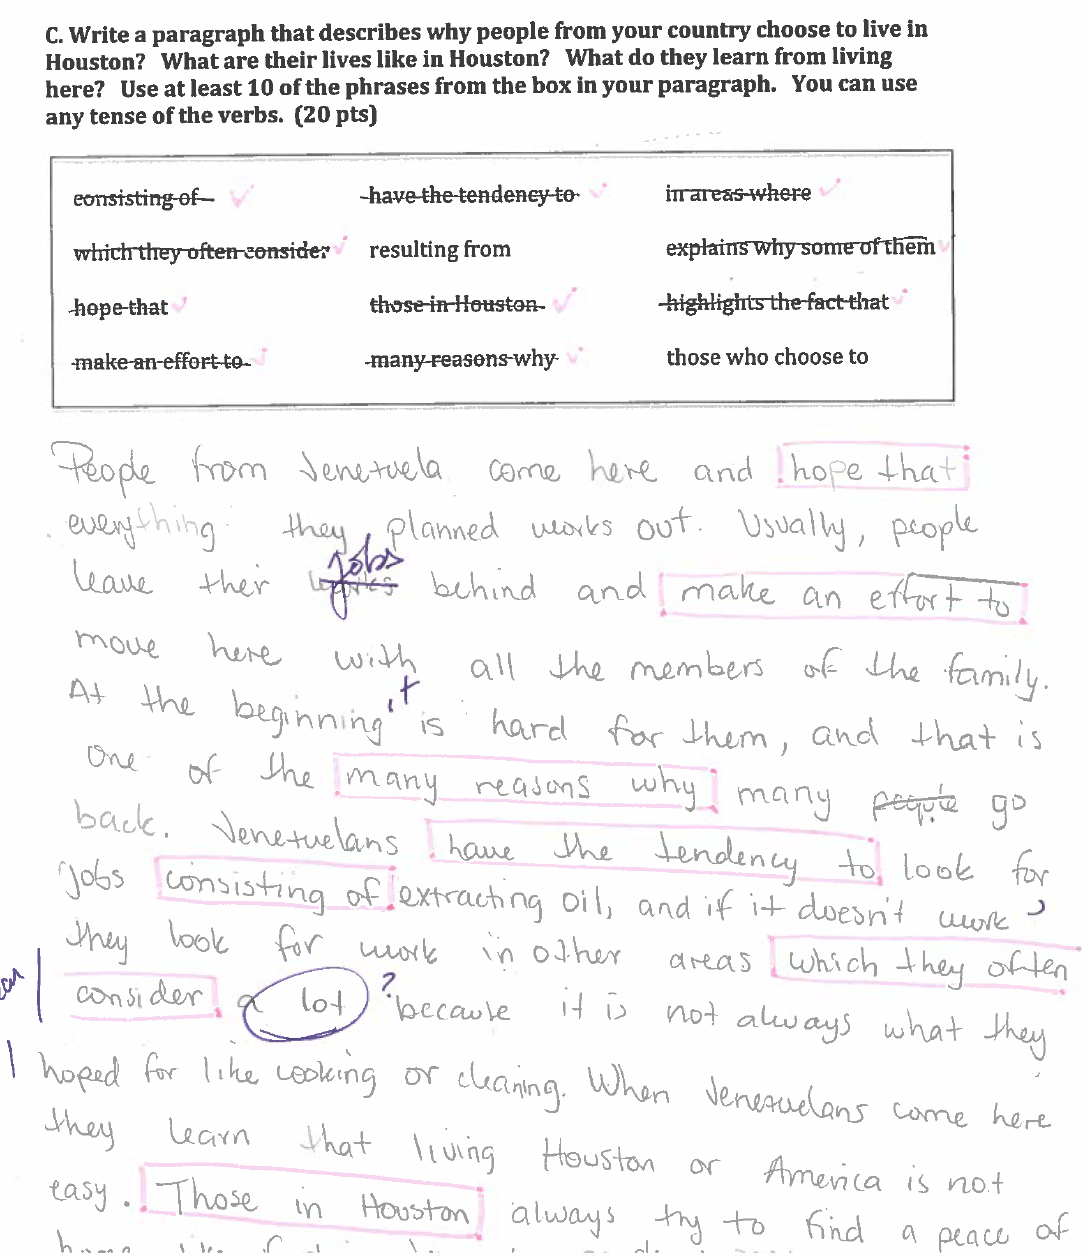 C. Write a paragraph that describes why people from your country choose to live in
Houston? What are their lives like in Houston? What do they learn from living
here? Use at least 10 of the phrases from the box in your paragraph. You can use
any tense of the verbs. (20 pts)
consisting of have the tendency to in areas where
which they often consider resulting from explains why some of them
hope that those in Houston highlights the fact that
make an effort to many reasons why those who choose to
People from Venezuela come here and hope that
everything they planned works out. Usually, people
jobs
leave their behind and make an effort to
move here with all the members of the family.
At the beginning it is hard for them, and that is
one of the many reasons why many people go
back. Venezuelans have the tendency to look for
jobs consisting of extracting oil, and if it doesn't work,
they look for work in other areas which they often
consider a lot ? because it is not always what they
hoped for like cooking or cleaning. When Venezuelans come here
they learn that living Houston or America is not
easy. Those in Houston always try to find a peace of